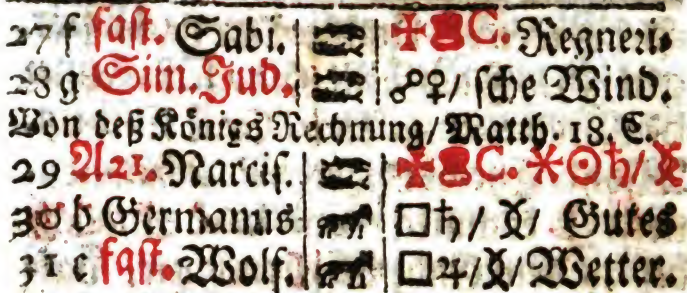 27 f fast. Sabi. ✠ C. Regneri⸗
28 g Sim. Jud. ☍♀/ sche Wind.
Von deß Königs Rechnung/ Matth. 18. C.
29 A 21. Narcis. ✠ C. ⚹☉♄/
30 b Germanus □♄/ Gutes
31 c fast. Wolf. □♃/ Wetter.